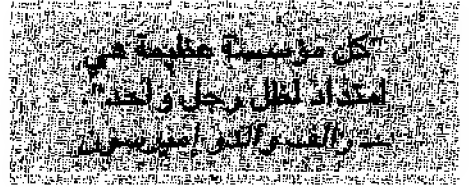 "كل مؤسسة عظيمة هي
امتداد لظل رجل واحد".
— رالف والدو إميرسون